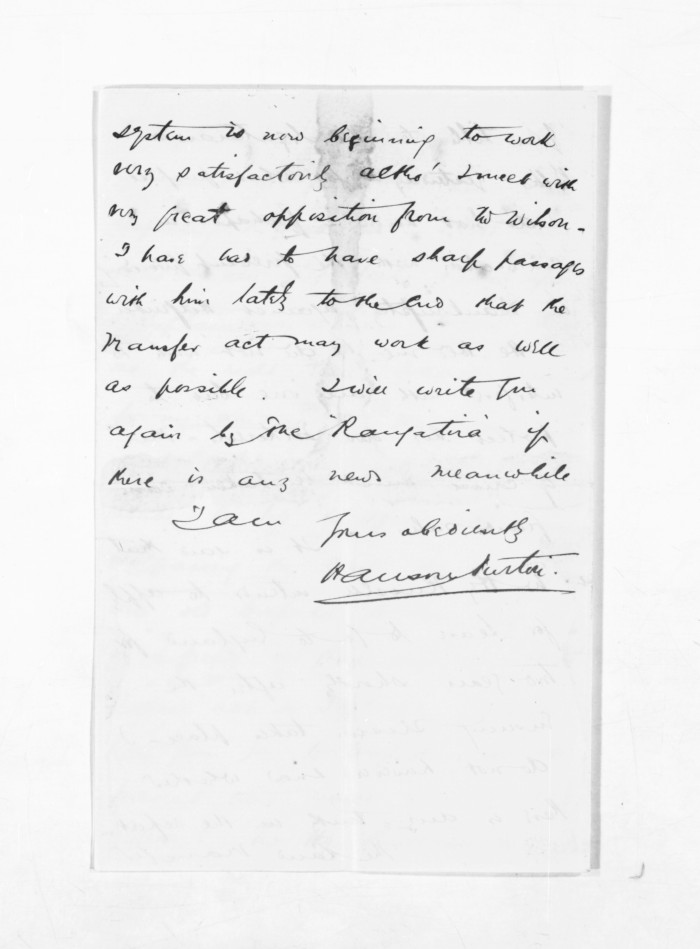 system is now beginning to work
very satisfactorily altho' I meet with
very great opposition from Mr Wilson -
I have had to have sharp passages
with him lately to the end that the
Transfer act may work as well
as possible. I will write you
again by the "Rangatira" if
there is any news meanwhile
I am yours obediently
Hanson Turton.